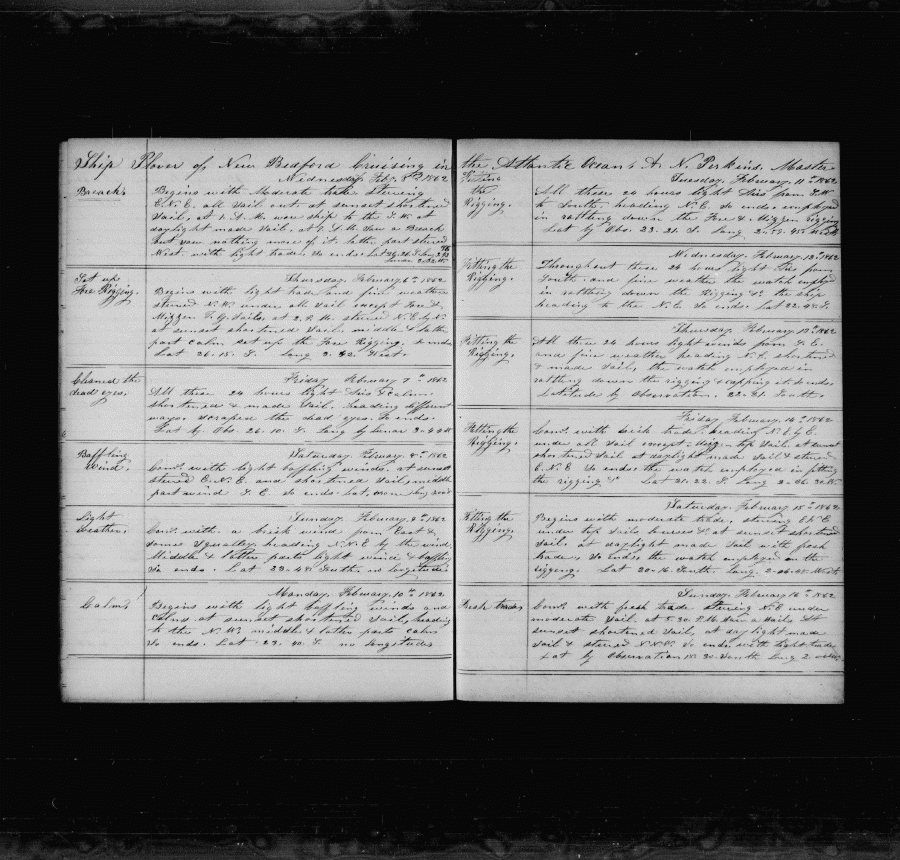 Ship Plover of New Bedford Cruising in
Wednesday Feby 5th 1862
Breach
Begins with Moderate steering
E.N.E. all sail out at sunset shortened
sail, at 1 A.M. wore ship to the S.W. at
daylight made sail. at 6 A.M. saw a Breach
but saw nothing more of it. latter part steered
West with light trades So ends
Set up
Fore Rigging.
Thursday February 6th 1862
Begins with light trade and fine weather
steered N.W. under all sail except Fore &
Mizzen T.G. Sails at 2 P.M. steered N.E. by N.
at sunset shortened sail. middle & latter
part calm set up the Fore Rigging. So ends
Lat 26.15. S. Long 2.32. West.
Cleaned the
dead eyes.
Friday February 7th 1862
All these 24 hours light airs & calms
shortened & made sail, heading different
ways, scraped the dead eyes. So ends.
Lat by Obs 26.10 S. Long by Lunar
Baffling
Wind.
Saturday February 8th 1862
Comd with light baffling winds. at sunset
steered E.N.E. and shortened sail, middle
part wind S.E. So ends
Light
Weather.
Sunday February 9th 1862
Comd with a brisk wind from East &
some squally heading N.N.E. by the wind,
Middle & latter parts light wind & baffling
So ends. Lat 23.48 South, no longitude
Calms
Monday February 10th 1862
Begins with light baffling winds and
calms at sunset shortened sail, heading
to the N.W. middle & latter parts calm
So ends. Lat 23.40 S. no longitude
the Atlantic Ocean, A. N. Perkins, Master
Tuesday. February 11th 1862
Fitting
the
Rigging.
All these 24 hours light airs from S.W.
to South heading N.E. So ends employed
in rattling down the Fore & Mizzen rigging
Lat by Obs. 23.21. S. Long
Wednesday. February 12th 1862
Fitting the
Rigging.
Throughout these 24 hours light airs from
South and fine weather the watch employed
in rattling down the Rigging &c the ship
heading to the N.E. So ends.
Thursday February 13th 1862
Fitting the
Rigging.
All these 24 hours light winds from S.E.
and fine weather heading N.E. shortened
& made sail, the watch employed in
rattling down the rigging & So ends
Latitude by Observation. South.
Friday February 14th 1862
Fitting the
Rigging.
Comd with brisk trade, heading N.E. by E.
under all sail except sail at sunset
shortened sail at daylight made sail & steered
E.N.E So ends the watch employed in fitting
the rigging &c Lat 21.22. S. Long
Saturday February 15th 1862
Fitting the
Rigging.
Begins with moderate trade, steering
under top sails & at sunset shortened
sail, at daylight made sail with fresh
trade, So ends, the watch employed on the
rigging. Lat 20.16 South. Long. West
Sunday February 16th 1862
Fresh trades
Comd with fresh trade steering N.E. under
moderate sail. at 5.30 P.M. saw a sail. At
sunset shortened sail, at day light made
sail & steered N.N.W. So ends with light trades
Lat by Observation South Long